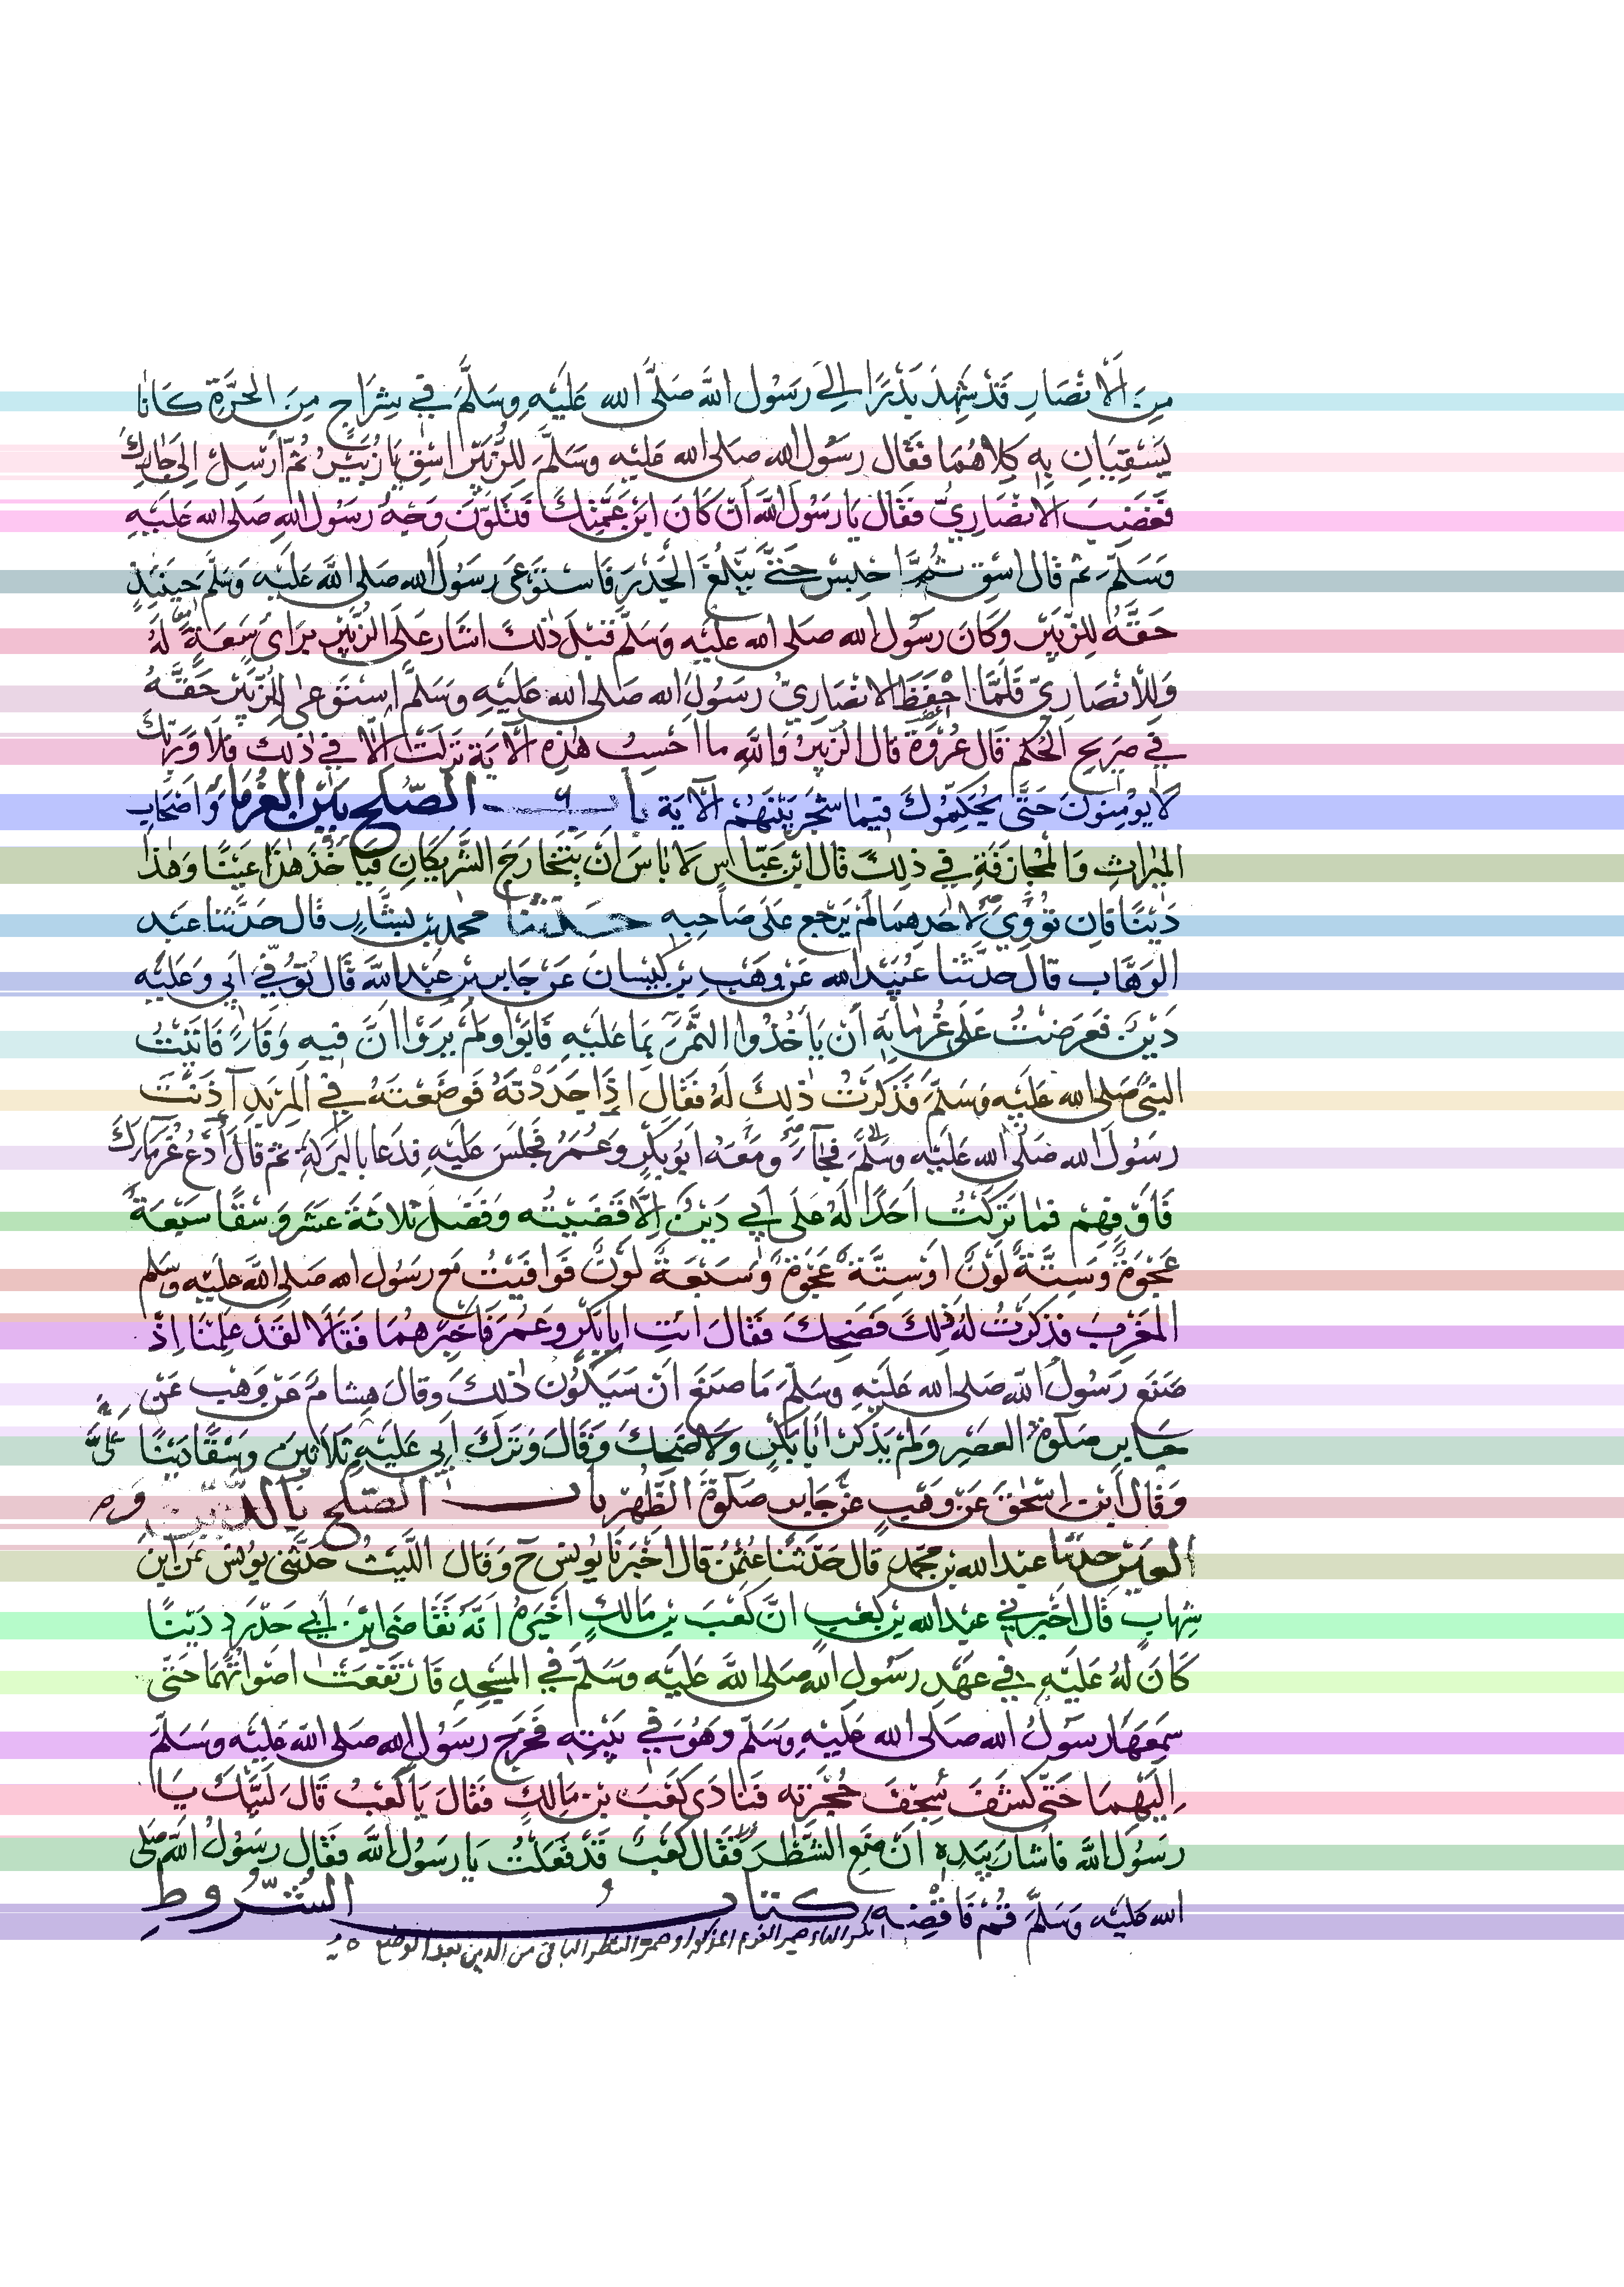 مِنَ الْاَنْصَارِ قَدْ شَهِدَ بَدْرًا اِلٰى رَسُولِ اللّٰهِ صَلَّى اللّٰه عَلَيْهِ وَسَلَّمَ فِي شِرَاجٍ مِنَ الْحَرَّةِ كَانَا
يَسْقِيَانِ بِهٖ كِلَاهُمَا فَقَال رَسُوْل الله صلى الله عليه وَسَلَّمَ لِلزُّبَيْرِ اسْقِ يَا زُبَيْرُ ثُمَّ اَرْسِلْ اِلٰى جَارِكَ
فَغَضِبَ الْاَنْصَارِيُّ فَقَال يَا رَسُولَ اللّٰهِ اَنْ كَانَ ابْنَ عَمَّتِكَ فَتَلَوَّنَ وَجْهُ رَسُوْل اللهِ صلى الله عَلَيْهِ
وَسَلَّمَ ثم قال اسْقِ ثُمَّ احْبِسْ حَتّٰى يَبْلُغَ الْجَدْرَ فَاسْتَوْعٰى رَسُوْلُ الله صلى اللّٰه عَلَيْهِ وَسَلَّمَ حِينَئِذٍ
حَقَّهُ لِلزُّبَيْرِ وَكَانَ رَسُوْل الله صلى الله عليْه وَسَلَّم قَبْلَ ذٰلِكَ اشَارَ عَلَى الزُّبَيْرِ بِرَأْيٍ سَعَةٍ لَهُ
وَلِلْاَنْصَارِيِّ فَلَمَّا اَحْفَظَ الْاَنْصَارِيُّ رَسُوْلَ الله صلى الله عَلَيْهِ وَسَلَّمَ اسْتَوْعٰى لِلزُّبَيْرِ حَقَّهُ
فِي صَرِيحِ الْحُكْمِ قَالَ عُرْوَةُ قال الزُّبَيْرُ وَاللّٰهِ ما اَحْسِبُ هٰذِهِ الْاٰيَةَ نَزَلَتْ اِلَّا فِي ذٰلِكَ فَلَا وَرَبِّكَ
لَا يُؤْمِنُوْنَ حَتّٰى يُحَكِّمُوْكَ فِيمَا شَجَرَ بَيْنَهُمْ الْاٰيَة بابُ الصُّلْحِ بَيْنَ الْغُرَمَاءِ وَاَصْحَابِ
الْمِيرَاثِ وَالْمُجَازَفَةِ فِي ذٰلِكَ قَالَ ابْنُ عَبَّاسٍ لَا بَاْسَ اَنْ يَتَخَارَجَ الشَّرِيْكَانِ فَيَاْخُذَ هٰذَا عَيْنًا وَهٰذَا
دَيْنًا فَاِنْ تَوِيَ لِاَحَدِهِمَا لَمْ يَرْجِعْ عَلٰى صَاحِبِهِ حَدَّثَنَا محمدُ بن بَشَّارٍ قال حَدَّثَنَا عَبْد
الْوَهَّابِ قالَ حَدَّثَنَا عُبَيْدُ الله عَنْ وَهْبِ بْنِ كَيْسَانَ عَنْ جَابِرِ بْنِ عَبْدِ اللّٰهِ قَالَ تُوُفِّيَ اَبِي وَعَلَيْهِ
دَيْنٌ فَعَرَضْتُ عَلٰى غُرَمَائِهٖ اَنْ يَاْخُذُوا التَّمْرَ بِمَا عَلَيْهِ فَاَبَوْا وَلَمْ يَرَوْا اَنَّ فِيهِ وَفَاءً فَاَتَيْتُ
النَّبِيَّ صلى الله عَلَيْه وَسَلَّمَ فَذَكَرْتُ ذٰلِكَ لَهُ فَقَالَ اِذَا جَدَدْتَهُ فَوَضَعْتَهُ فِي الْمِرْبَدِ اٰذَنْتَ
رَسُوْلَ الله صَلَّى الله عَلَيْه وَسَلَّمَ فَجَاءَ وَمَعَهُ اَبُوْ بَكْرٍ وَعُمَرُ فَجَلَسَ عَلَيْهِ فَدَعَا بِالْبَرَكَةِ ثُمَّ قَالَ ادْعُ غُرَمَاءَكَ
فَاَوْفِهِمْ فَمَا تَرَكْتُ اَحَدًا لَهُ عَلٰى اَبِي دَيْنٌ اِلَّا قَضَيْتُهُ وَفَضَلَ ثَلَاثَةَ عَشَرَ وَسْقًا سَبْعَةٌ
عَجْوَةٌ وَسِتَّةٌ لَوْنٌ اَوْ سِتَّةٌ عَجْوَةٌ وَسَبْعَةٌ لَوْنٌ فَوَافَيْتُ مَعَ رَسُوْل الله صَلى اللّٰه عَلَيْه وَسَلم
الْمَغْرِبَ فَذَكَرْتُ لَهُ ذٰلِكَ فَضَحِكَ فَقَالَ ائْتِ اَبَا بَكْرٍ وَعُمَرَ فَاَخْبِرْهُمَا فَقَالَا لَقَدْ عَلِمْنَا اِذْ
صَنَعَ رَسُوْلُ اللّٰه صَلى الله عَلَيْهِ وَسَلَّمَ مَا صَنَعَ اَنْ سَيَكُوْن ذٰلِكَ وَقَالَ هِشَامٌ عَنْ وَهْبٍ عَنْ
جَابِرٍ صَلٰوةَ الْعَصْرِ وَلَمْ يَذْكُرْ اَبَا بَكْرٍ وَلَا ضَحِكَ وَقَالَ وَتَرَكَ اَبِي عَلَيْهِ ثَلَاثِيْنَ وَسْقًا دَيْنًا
وَقَالَ ابْنُ اِسْحٰقَ عَنْ وَهْبٍ عَنْ جَابِرٍ صَلٰوةَ الظُّهْرِ بابُ الصُّلْحِ بِالدَّيْنِ وَ
الْعَيْنِ حدثنا عبد الله بن محمدٍ قَالَ حَدَّثَنَا عُثْمٰنُ قَالَ اَخْبَرَنَا يُونُسُ ح وَقَالَ اللَّيْثُ حَدَّثَنِي يُونُسُ عَنِ ابْنِ
شِهَابٍ قَالَ اَخْبَرَنِي عبد الله بن كَعْبٍ اَنَّ كَعْبَ بْنَ مَالِكٍ اَخْبَرَهُ اَنَّهُ تَقَاضَى ابْنَ اَبِي حَدْرَدٍ دَيْنًا
كَانَ لَهُ عَلَيْهِ فِي عَهْدِ رَسُوْلِ الله صلى اللّٰه عَلَيْه وَسَلَّمَ فِي الْمَسْجِدِ فَارْتَفَعَتْ اَصْوَاتُهُمَا حَتّٰى
سَمِعَهَا رَسُوْلُ الله صَلَى الله عَلَيْهِ وَسَلَّمَ وَهُوَ فِي بَيْتِهِ فَخَرَجَ رَسُوْلُ الله صَلى الله عَلَيْه وَسَلَّمَ
اِلَيْهِمَا حَتّٰى كَشَفَ سِجْفَ حُجْرَتِهِ فَنَادٰى كَعْبَ بْنَ مَالِكٍ فَقَالَ يَا كَعْبُ قَالَ لَبَّيْكَ يَا
رَسُوْلَ اللّٰه فَاَشَارَ بِيَدِهِ اَنْ ضَعِ الشَّطْرَ فَقَالَ كَعْبٌ قَدْ فَعَلْتُ يَا رَسُوْلَ اللّٰهِ فَقَال رَسُوْلُ اللّٰه صلى
الله عليْه وَسَلَّمَ قُمْ فَاقْضِهِ كتابُ الشُّرُوْطِ